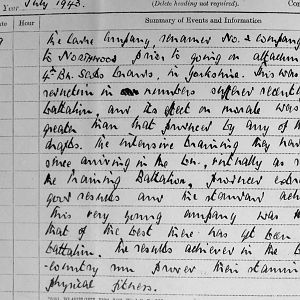 Year July 1943.
(Delete heading not required).
Hour Summary of Events and Information
9 The same Company, renamed No. 2 Company
to NORTHWOOD prior to going on attachm
4th Bn. Scots Guards, in Yorkshire. This was
reduction in numbers suffered recent
battalion, and its effect on morale was
greater than that produced by any of th
drafts. The intensive training they hav
since arriving in the Bn., virtually as a
the Training Battalion, produced extre
good results and the standard achi
this very young company was
that of the best there has yet been
battalion. The results achieved in the
-country run proved their stamina
physical fitness.